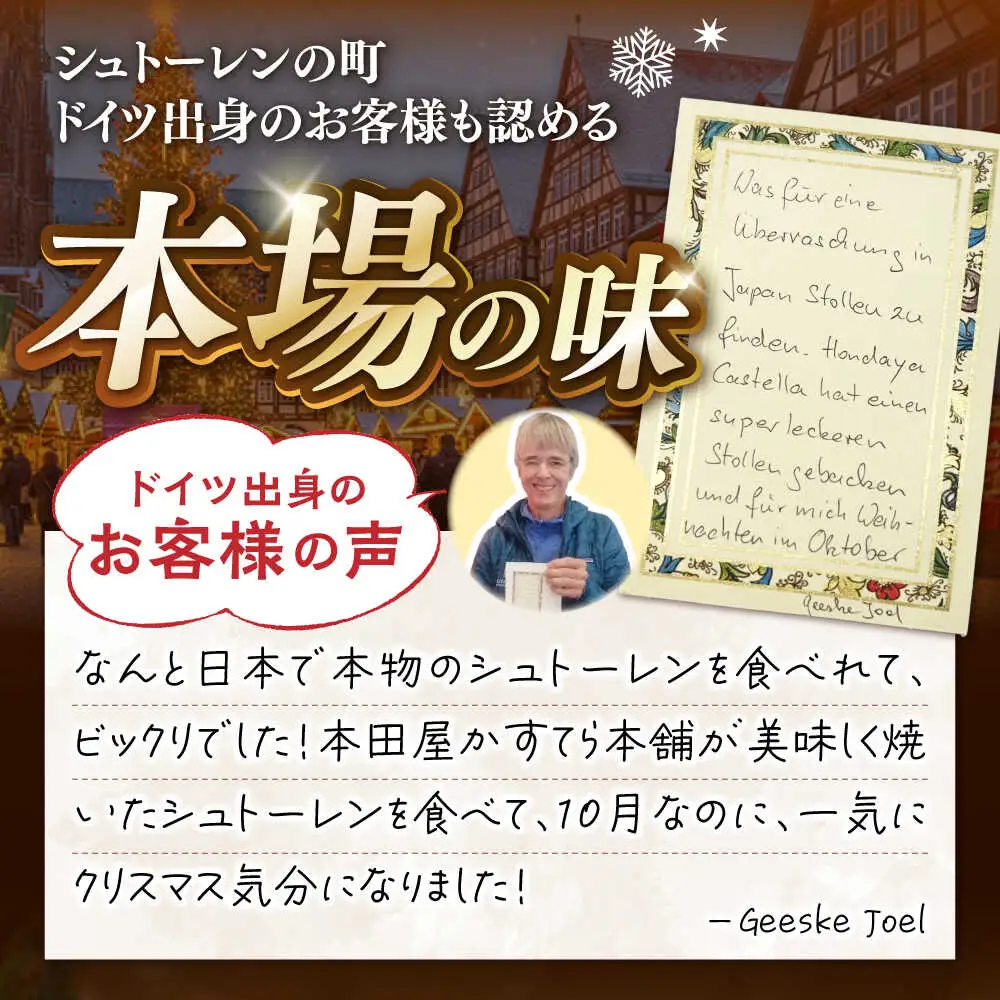 シュトーレンの町
ドイツ出身のお客様も認める
本場の味
Was für eine
Überraschung in
Japan Stollen zu
finden. Hondaya
Castella hat einen
super leckeren
Stollen gebacken
und für mich Weih-
nachten im Oktober
Geeske Joel
ドイツ出身の
お客様の声
なんと日本で本物のシュトーレンを食べれて、
ビックリでした!本田屋かすてら本舗が美味しく焼
いたシュトーレンを食べて、10月なのに、一気に
クリスマス気分になりました!
－Geeske Joel